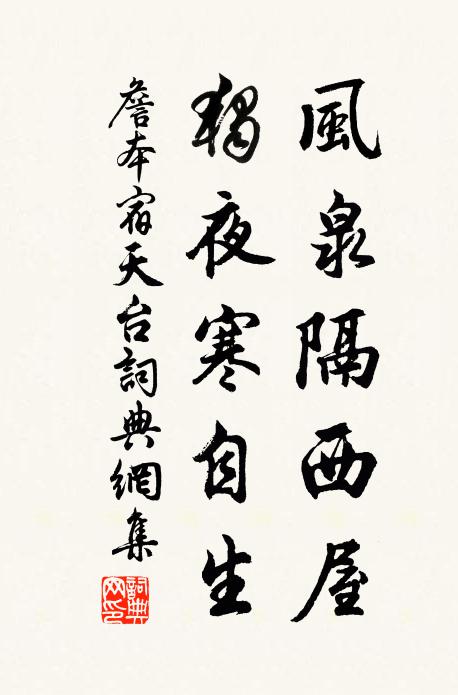 風泉隔西屋
獨夜寒自生
詹本宿天台詞典網集
詞典網印